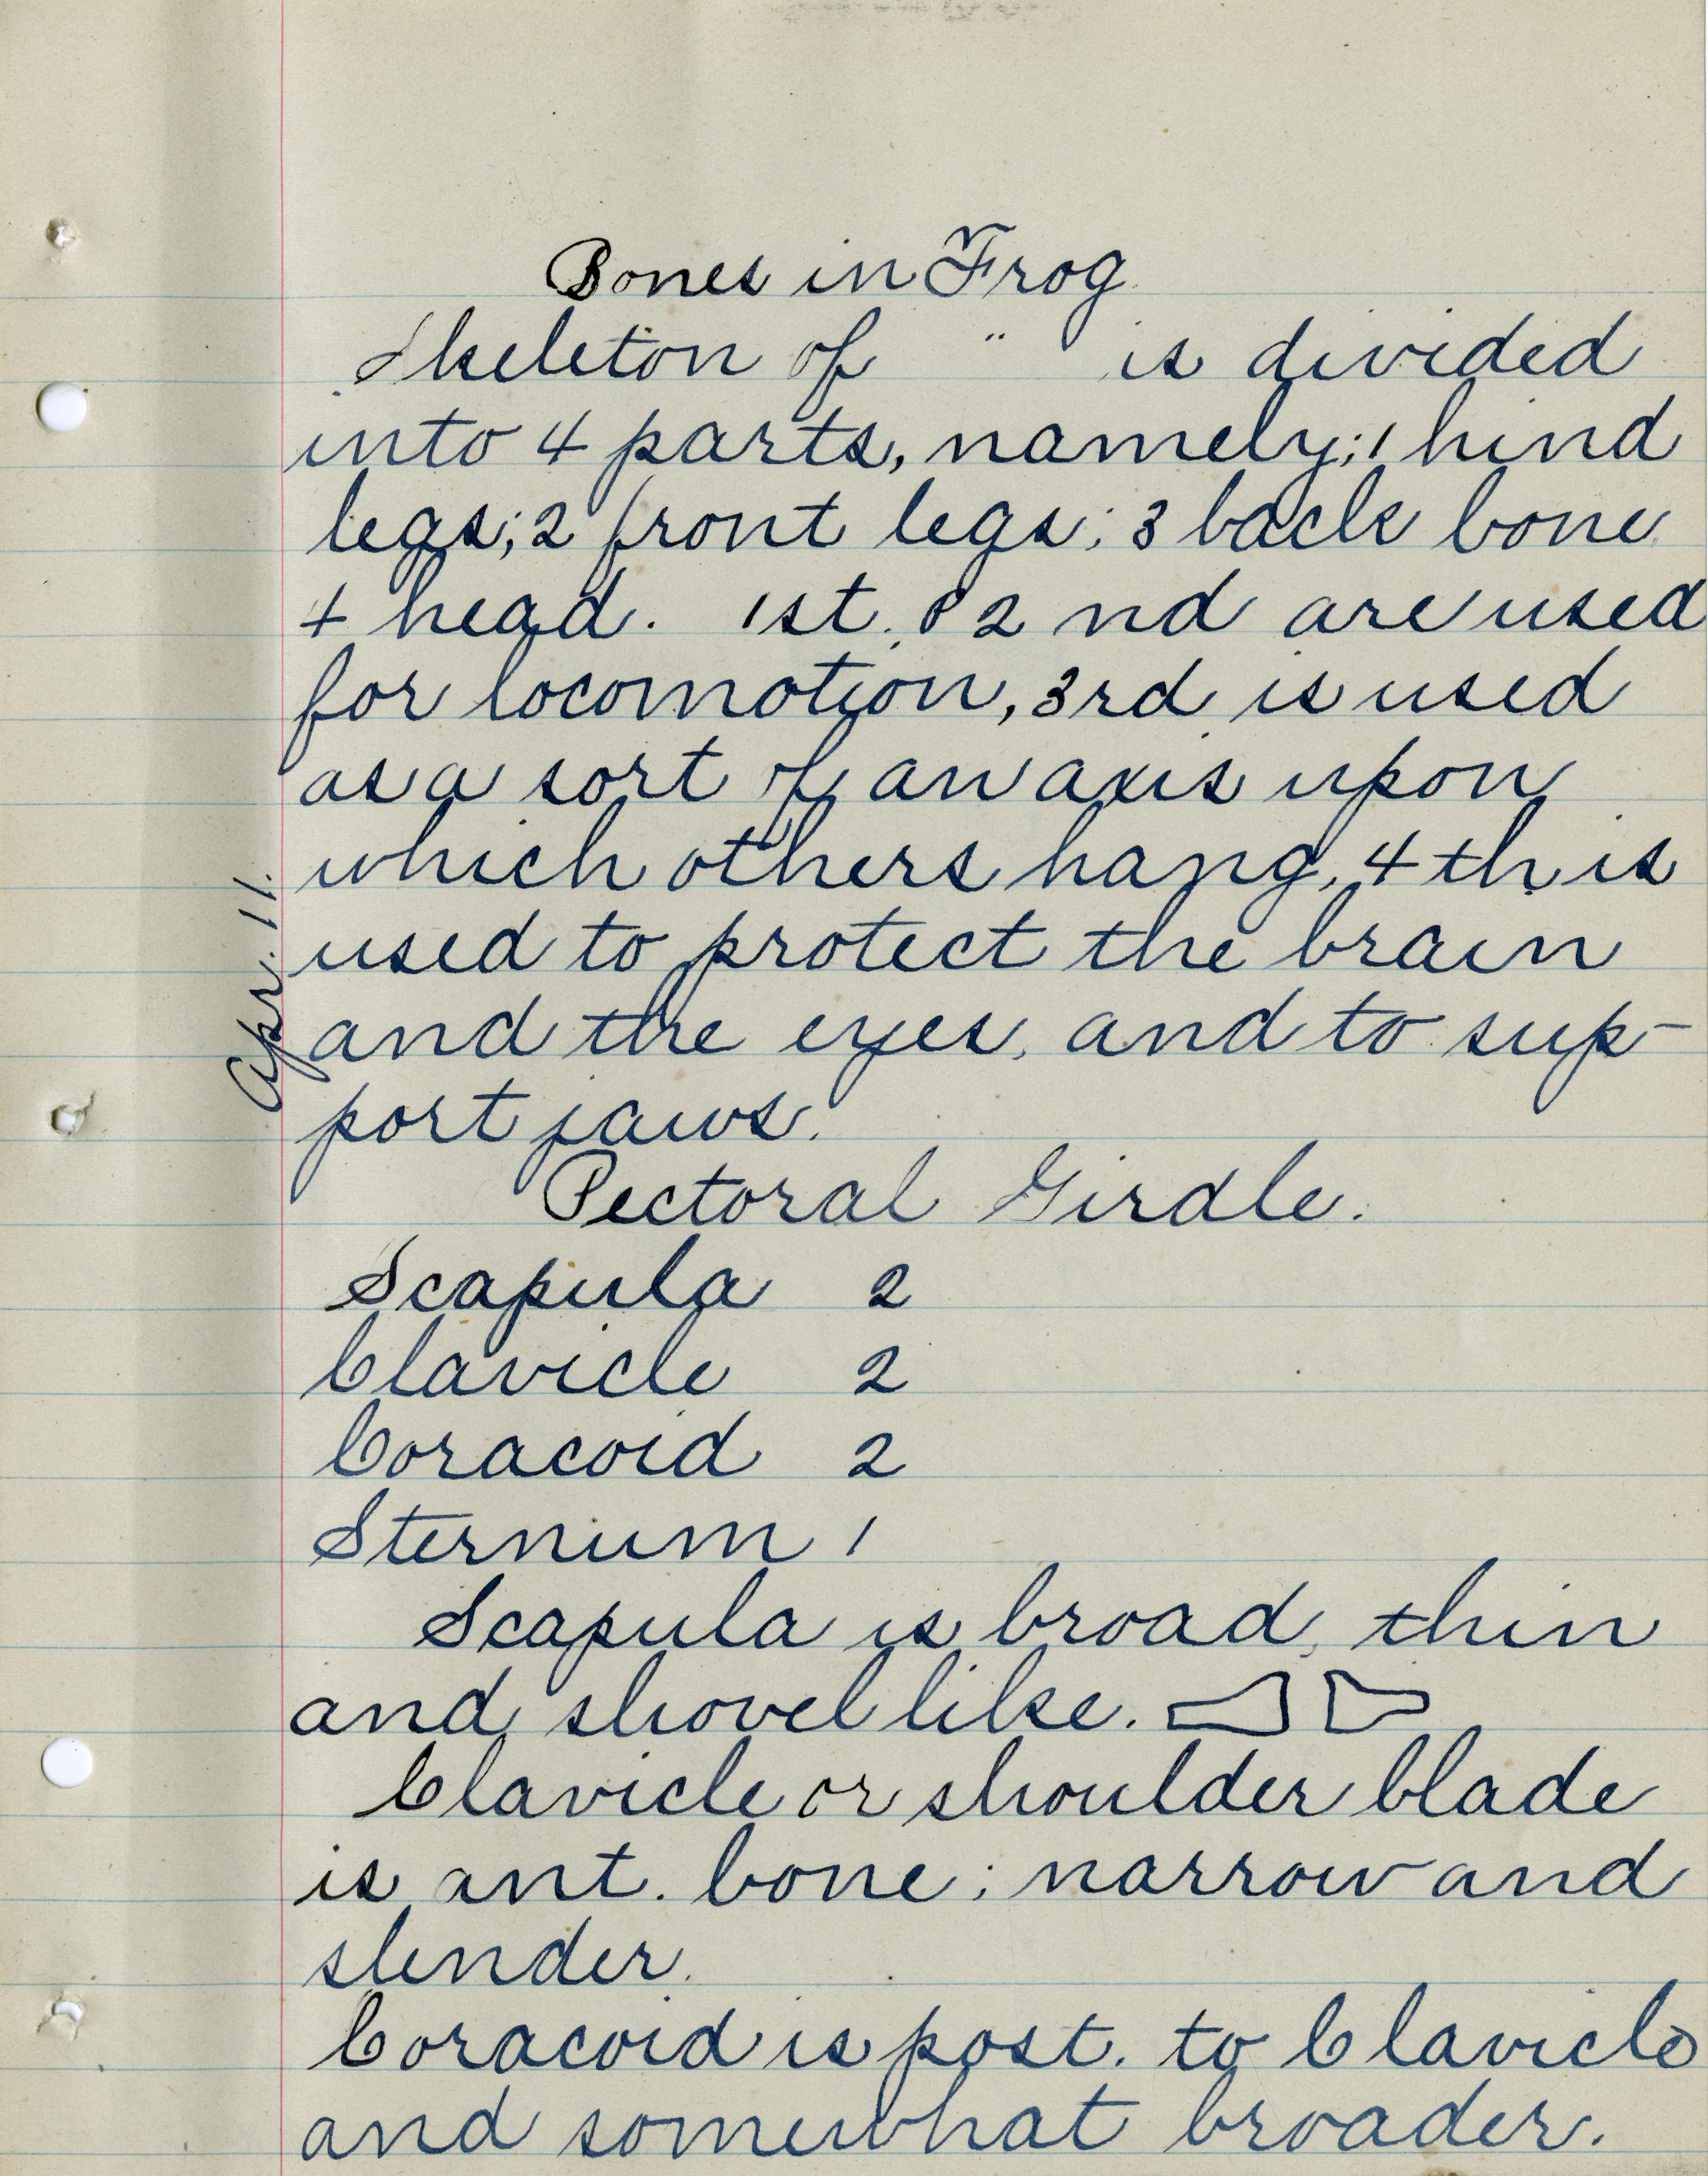 Bones in Frog
Skeleton of " is divided
into 4 parts, namely; 1 hind
legs; 2 front legs; 3 back bone
4 head. 1st. & 2nd are used
for locomotion, 3rd is used
as a sort of an axis upon
which others hang, 4th is
used to protect the brain
and the eyes, and to sup-
port jaws.
Apr. 11.
Pectoral Girdle.
Scapula 2
Clavicle 2
Coracoid 2
Sternum 1
Scapula is broad, thin
and shovel like.
Clavicle or shoulder blade
is ant. bone; narrow and
slender.
Coracoid is post. to Clavicle
and somewhat broader.